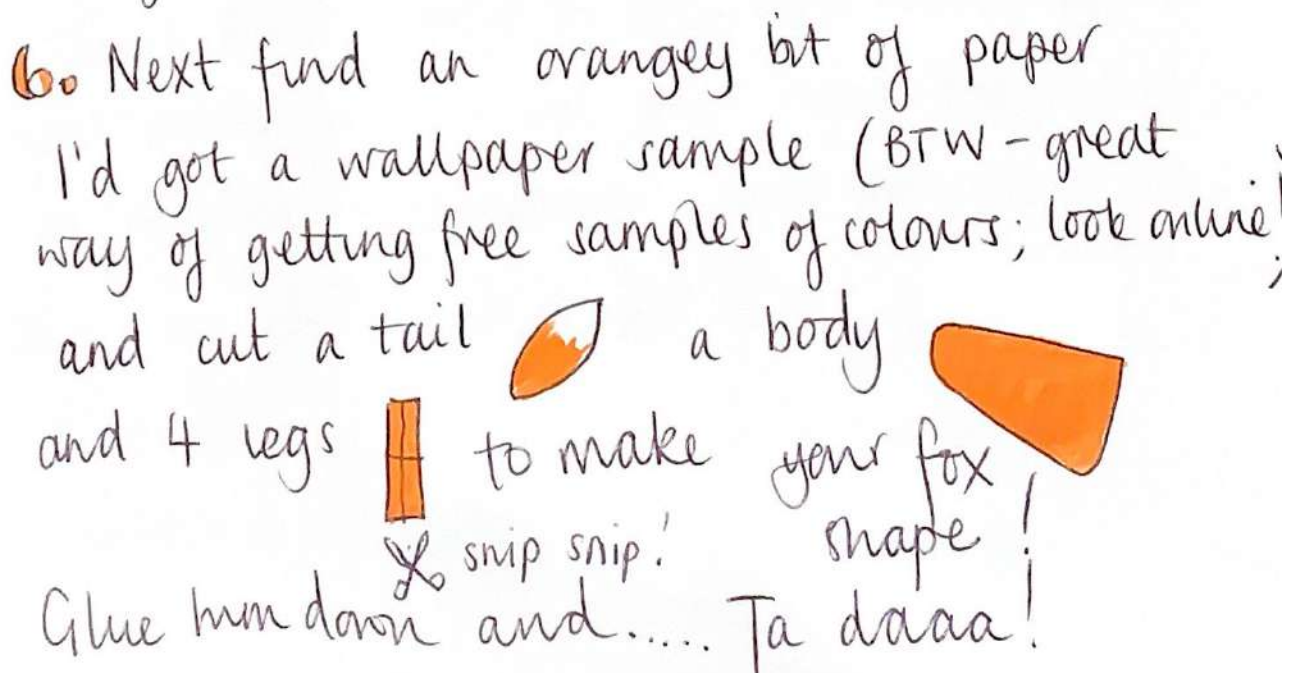 6. Next find an orangey bit of paper
I'd got a wallpaper sample (BTW - great
way of getting free samples of colours; look online!)
and cut a tail a body
and 4 legs to make your fox
snip snip! shape!
Glue him down and..... Ta daaa!